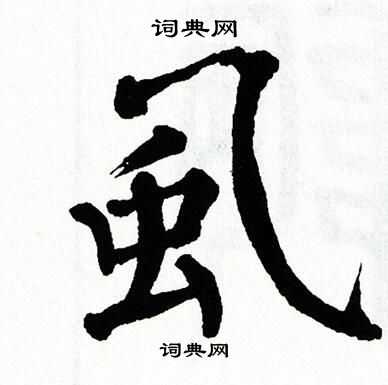 词典网
虱
词典网